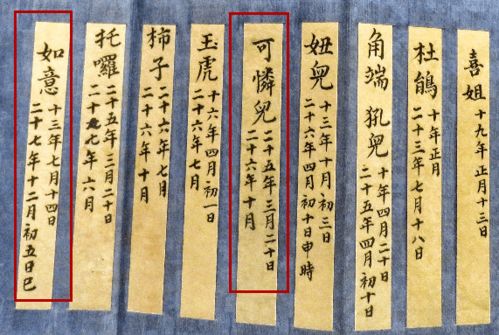 喜姐 十九年正月十三日
杜鵑 十年正月
二十三年七月十八日
角端 犼兒 十年四月二十日
二十五年四月初十日
妞兒 十三年十月初三日
二十六年四月初十日申時
可憐兒 二十五年三月二十日
二十六年十月
玉虎 十六年四月初一日
二十六年七月
柿子 二十六年七月
二十六年十月
托囉 二十五年三月二十日
二十年六月
如意 十三年七月十四日
二十七年十二月初五日巳